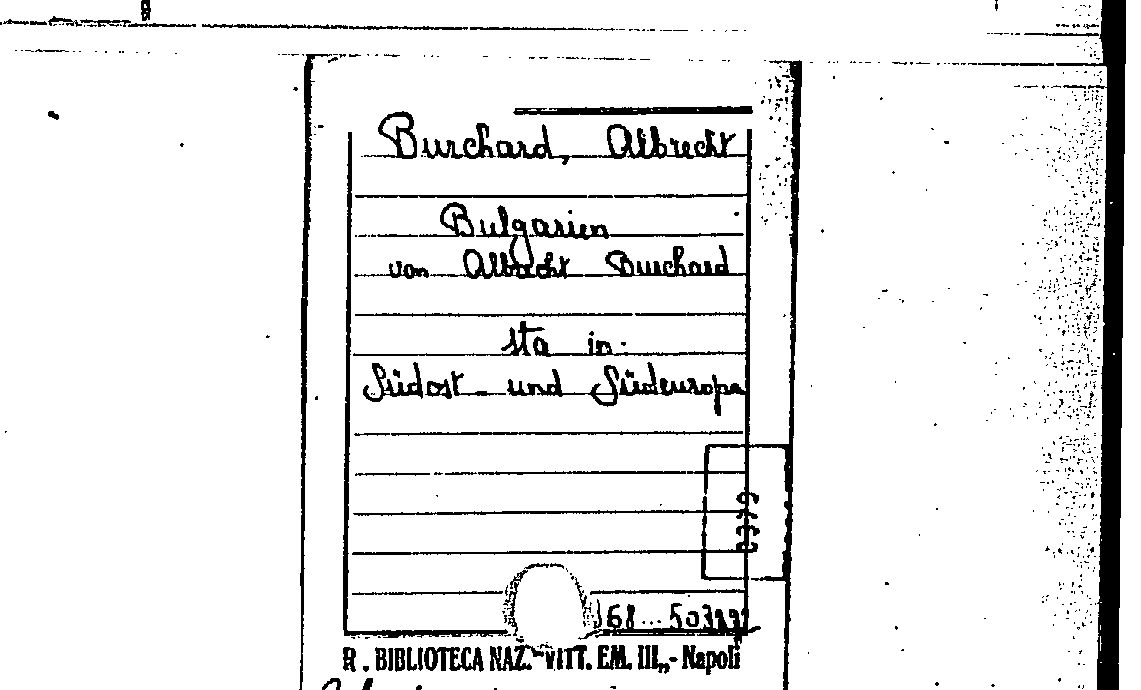 Burchard, Albrecht
Bulgarien
von Albrecht Burchard
sta in:
Südost- und Südeuropa
R. BIBLIOTECA NAZ. "VITT. EM. III„ - Napoli